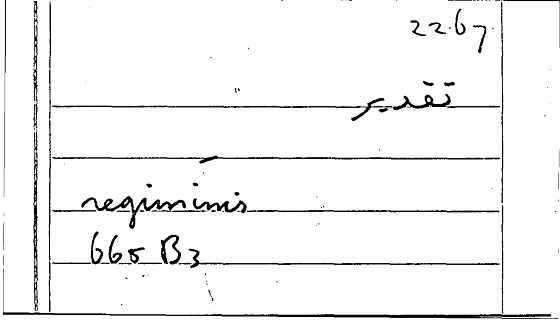 2267
تقدير
regiminis
665 B3